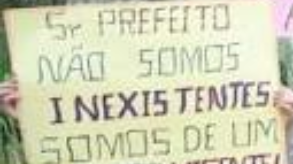 Sr PREFEITO
NÃO SOMOS
INEXISTENTES
SOMOS DE UM